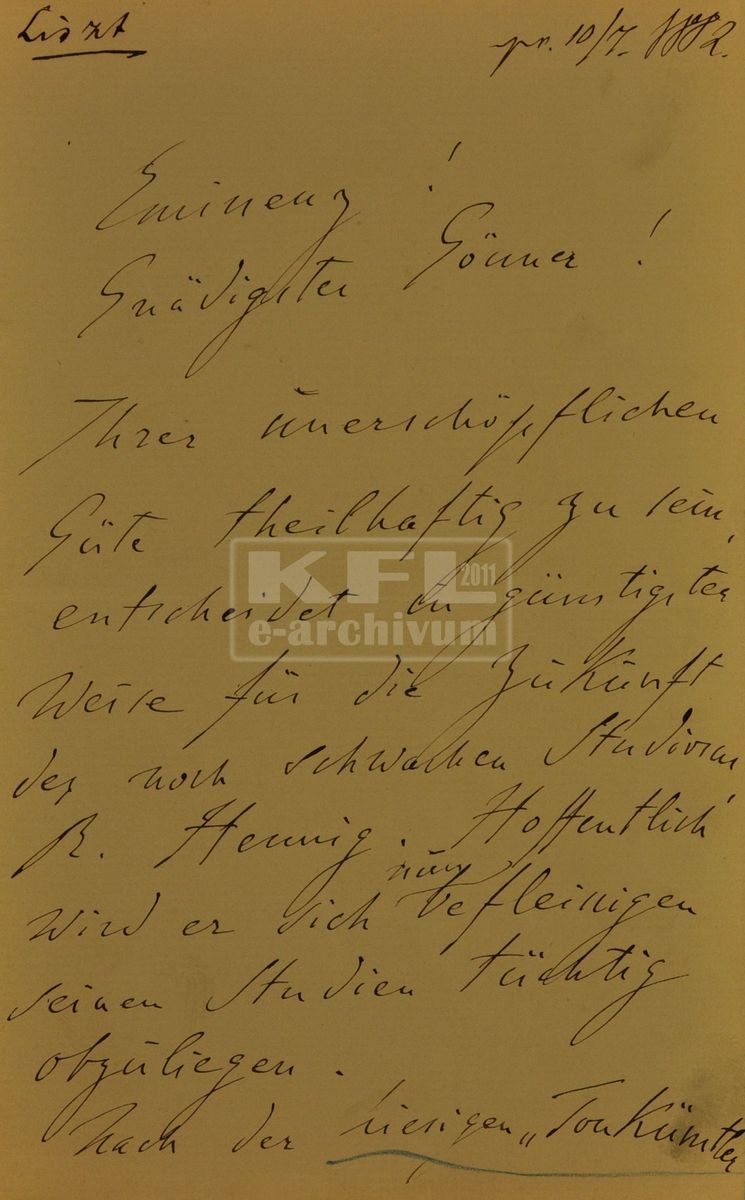 Liszt
pr. 10/7. 1882.
Eminenz!
Gnädigster Gönner!
Ihrer unerschöpflichen
Güte theilhaftig zu sein,
KFL 2011
e-archivum
entscheidet in günstigster
Weise für die Zukunft
des noch schwachen
R. Hennig. Hoffentlich
wird er sich nun befleissigen
seinen Studien tüchtig
obzuliegen.
Nach der hiesigen „Tonkünstler